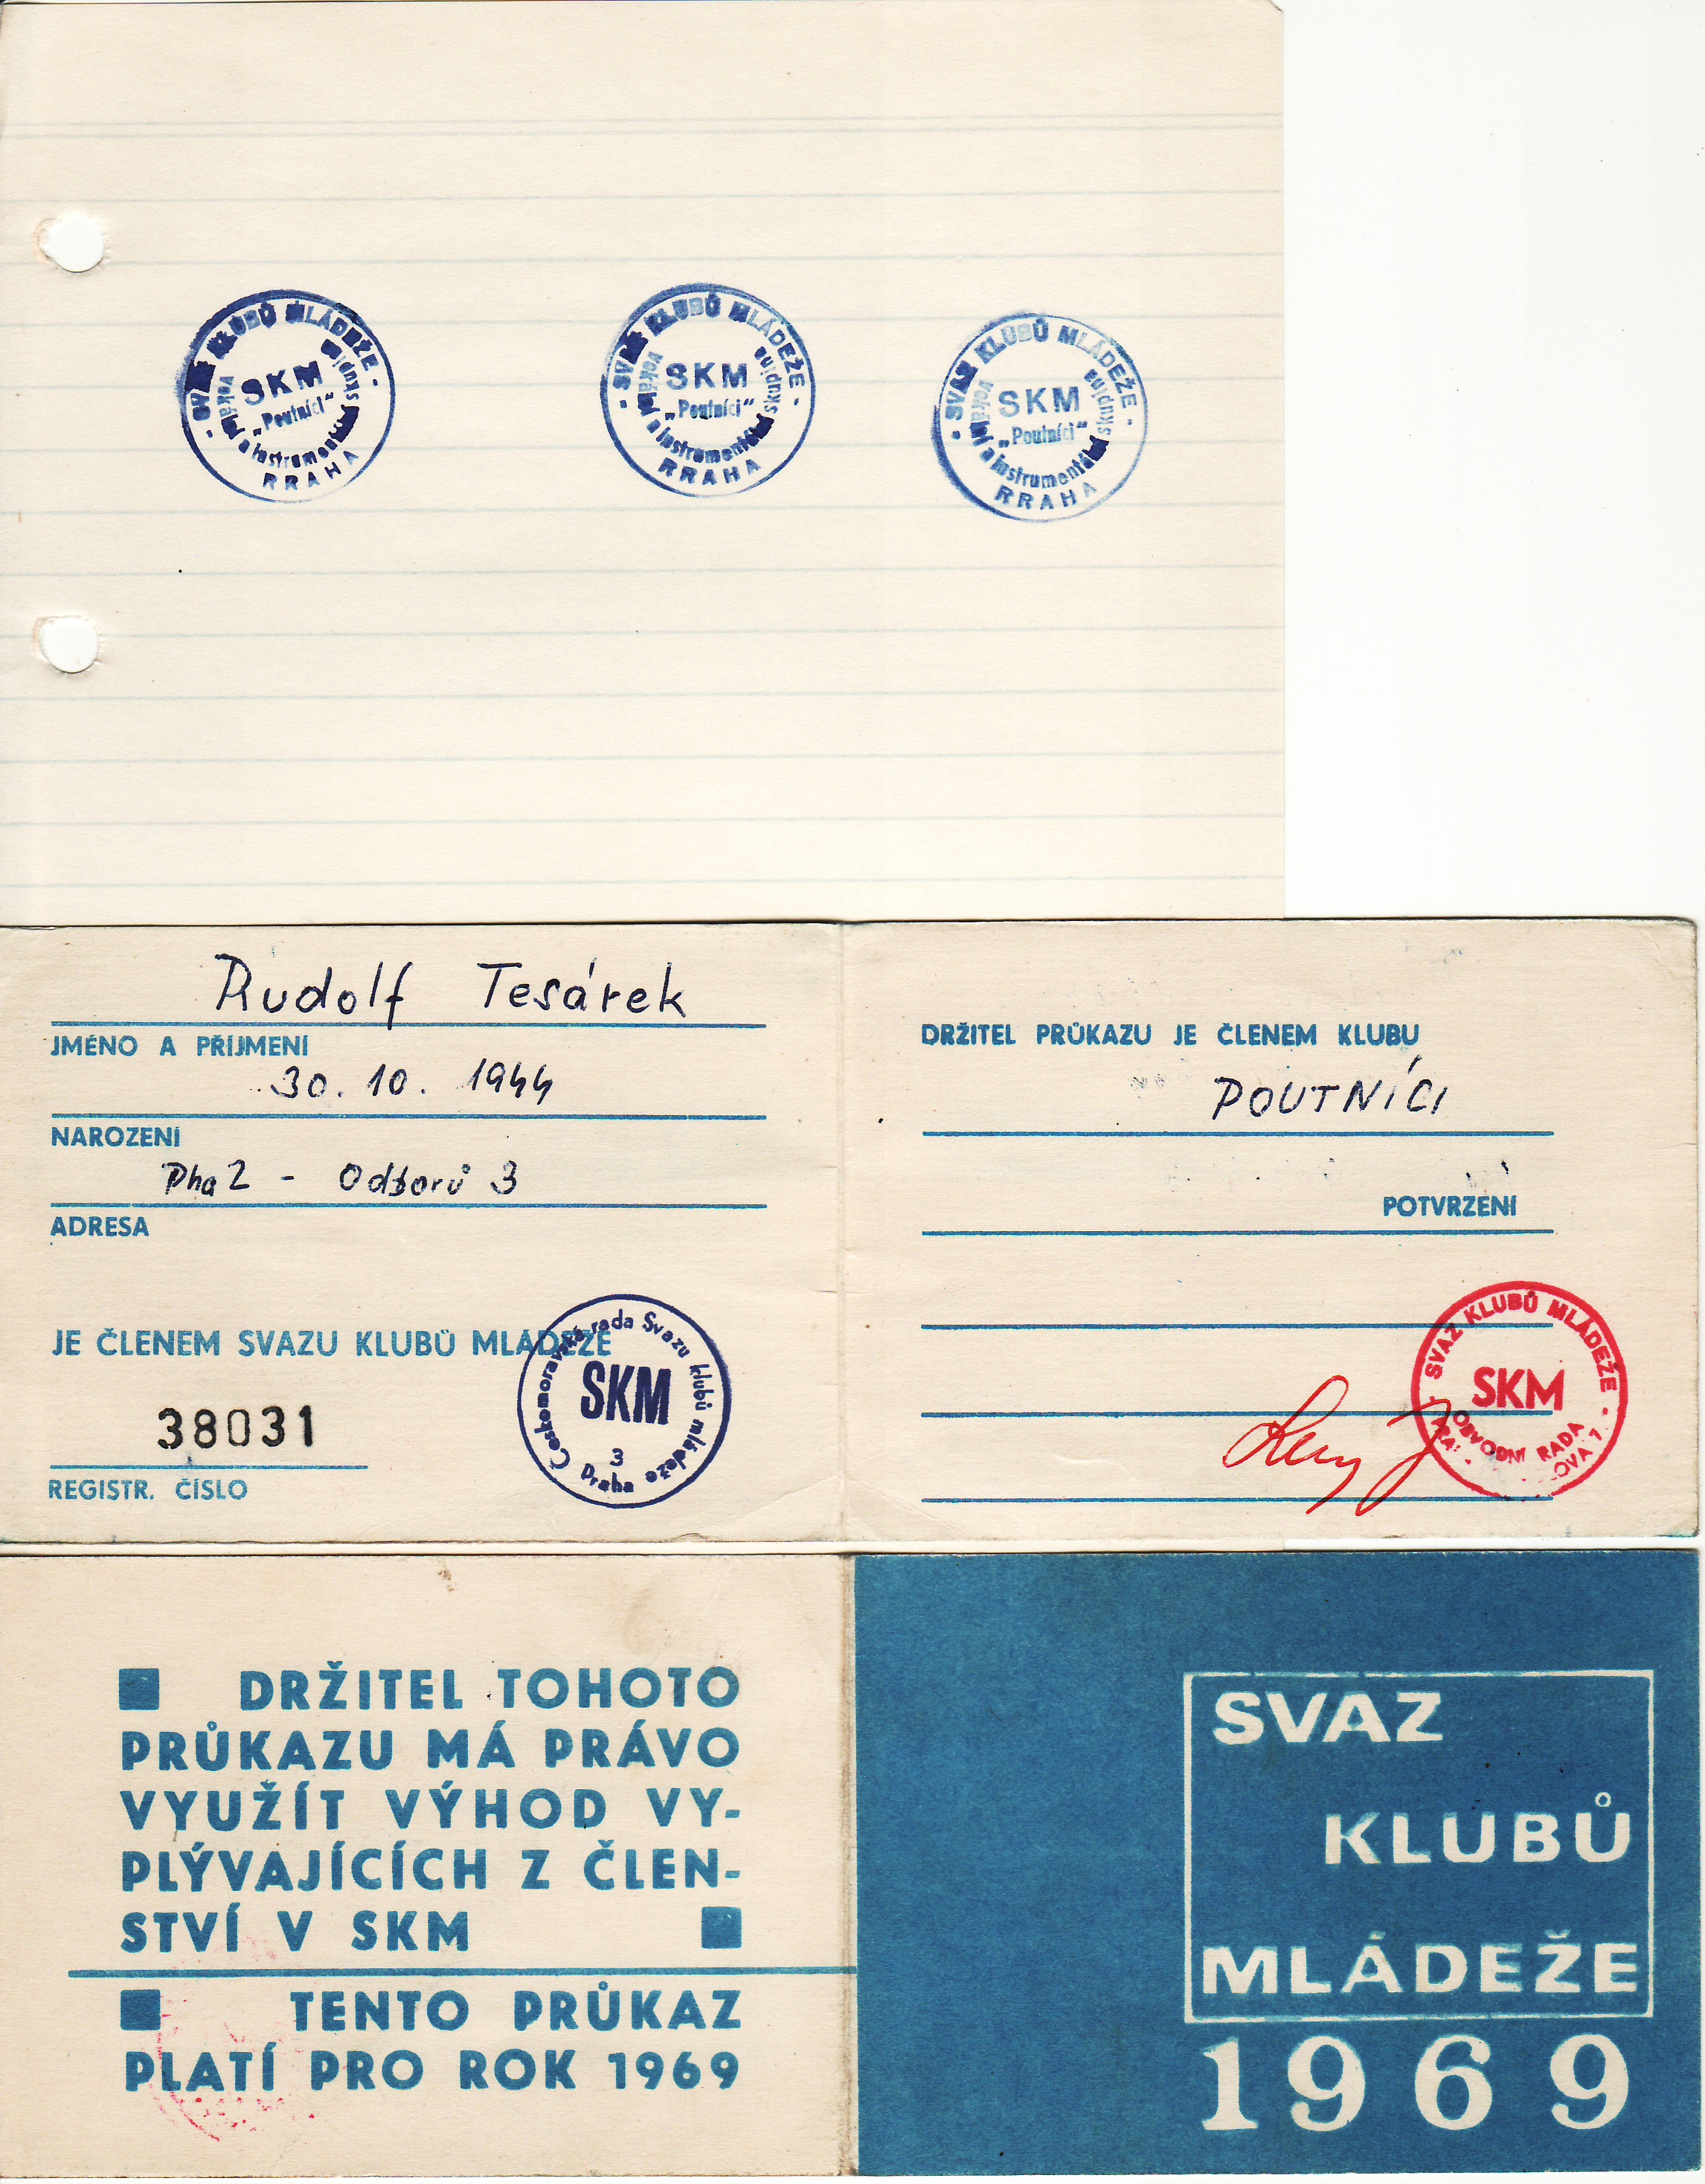 - SVAZ KLUBŮ MLÁDEŽE -
vokální a instrumentální skupina
SKM
„Poutníci“
RRAHA
- SVAZ KLUBŮ MLÁDEŽE -
vokální a instrumentální skupina
SKM
„Poutníci“
RRAHA
- SVAZ KLUBŮ MLÁDEŽE -
vokální a instrumentální skupina
SKM
„Poutníci“
RRAHA
Rudolf Tesárek
JMÉNO A PŘÍJMENÍ
30. 10. 1944
NAROZENÍ
Pha 2 - Odborů 3
ADRESA
JE ČLENEM SVAZU KLUBŮ MLÁDEŽE
38031
REGISTR. ČÍSLO
Českomoravská rada Svazu klubů mládeže
SKM
3
Praha
DRŽITEL PRŮKAZU JE ČLENEM KLUBU
POUTNÍCI
POTVRZENÍ
- SVAZ KLUBŮ MLÁDEŽE -
SKM
OBVODNÍ RADA
■ DRŽITEL TOHOTO
PRŮKAZU MÁ PRÁVO
VYUŽÍT VÝHOD VY-
PLÝVAJÍCÍCH Z ČLEN-
STVÍ V SKM ■
■ TENTO PRŮKAZ
PLATÍ PRO ROK 1969
SVAZ
KLUBŮ
MLÁDEŽE
1969